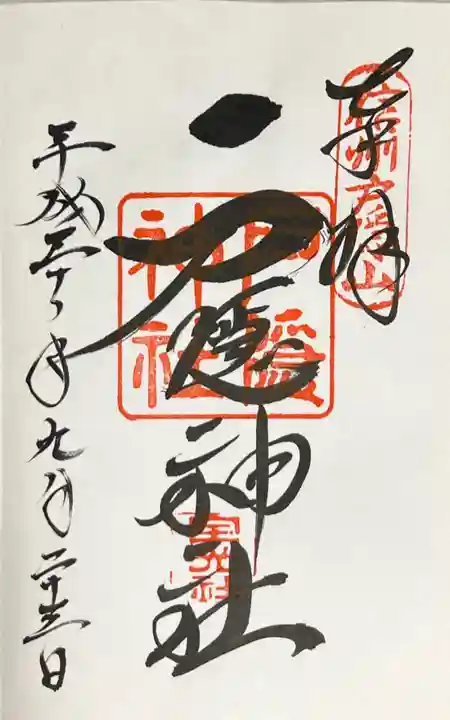 奉拝
信州戸隠山
戸隠神社
戸隠神社
宝光社
平成三十年九月二十三日